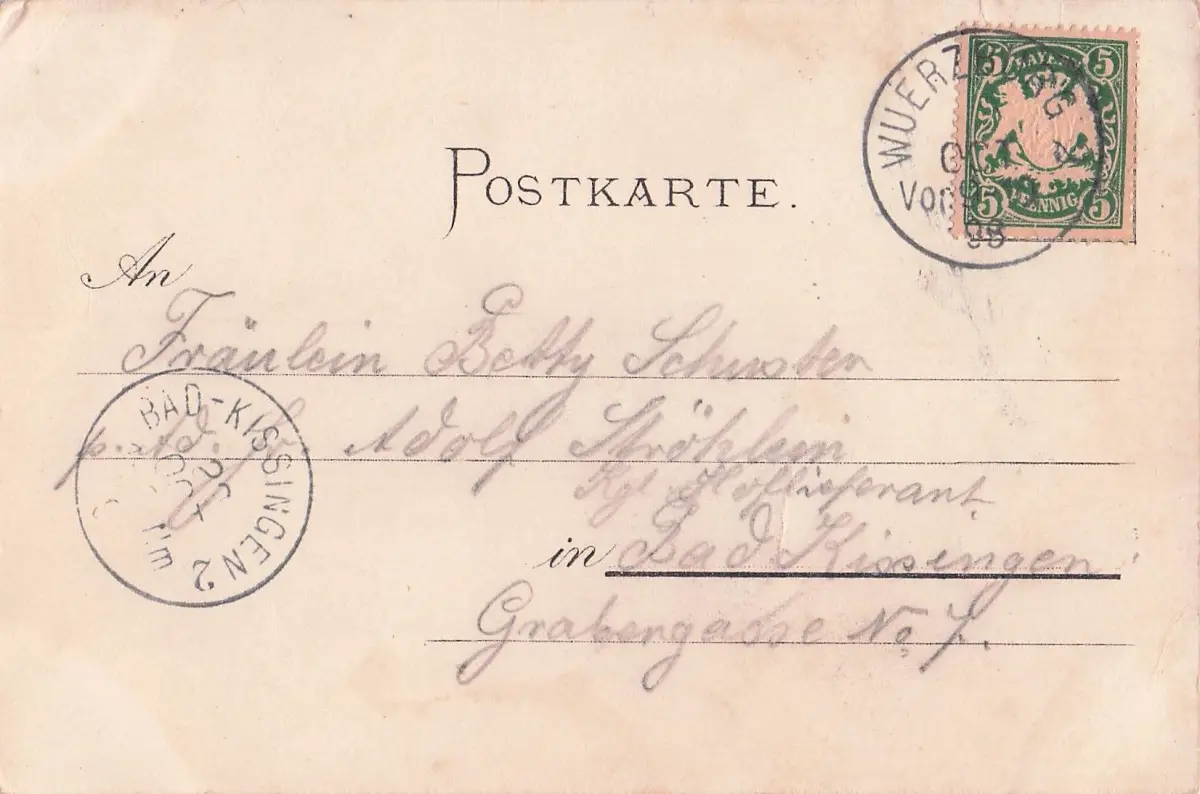 WUERZBURG
OCT 2
Vor 9
98
5 BAYERN 5
5 PFENNIG 5
POSTKARTE.
An
Fräulein Betty Schuster
p. Ad. Hr. Adolf Ströhlein
Kgl. Hoflieferant
in Bad Kissingen
Grabengasse No 7.
BAD-KISSINGEN 2
OCT